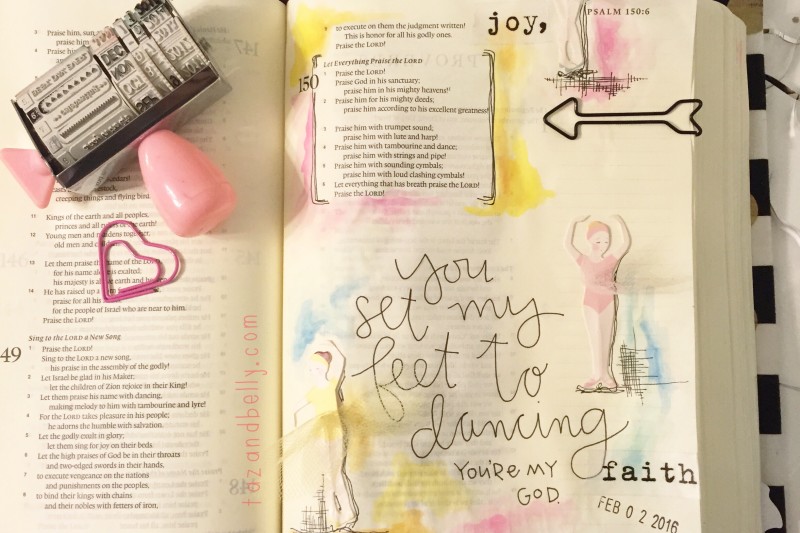 3 Praise him, sun
praise him
4 Praise
creeping things and flying birds
11 Kings of the earth and all peoples,
princes and all of the earth!
12 Young men and maidens together,
old men and
13 Let them praise the name of the LORD
for his name is exalted;
his majesty is earth and
14 He has raised up a
praise for all his
for the people of Israel who are near to him.
Praise the LORD!
Sing to the LORD a New Song
49
1 Praise the LORD!
Sing to the LORD a new song,
his praise in the assembly of the godly!
2 Let Israel be glad in his Maker;
let the children of Zion rejoice in their King!
3 Let them praise his name with dancing,
making melody to him with tambourine and lyre!
4 For the LORD takes pleasure in his people;
he adorns the humble with salvation.
5 Let the godly exult in glory;
let them sing for joy on their beds.
6 Let the high praises of God be in their throats
and two-edged swords in their hands,
7 to execute vengeance on the nations
and punishments on the peoples,
8 to bind their kings with chains
and their nobles with fetters of iron,
tazandbelly.com
9 to execute on them the judgment written!
This is honor for all his godly ones.
Praise the LORD!
joy,
PSALM 150:6
Let Everything Praise the LORD
150
1 Praise the LORD!
Praise God in his sanctuary;
praise him in his mighty heavens!
2 Praise him for his mighty deeds;
praise him according to his excellent greatness!
3 Praise him with trumpet sound;
praise him with lute and harp!
4 Praise him with tambourine and dance;
praise him with strings and pipe!
5 Praise him with sounding cymbals;
praise him with loud clashing cymbals!
6 Let everything that has breath praise the LORD!
Praise the LORD!
you
set my
feet to
dancing
YOU'Re MY
GOD.
faith
FEB 02 2016